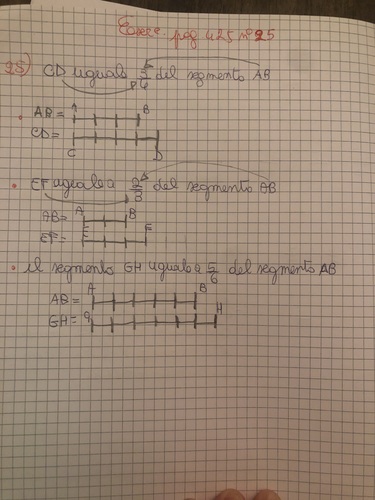 pag 425 n° 25
25) CD uguale del segmento AB
A B
AB=
CD=
C D
• EF uguale a 2/3 del segmento AB
A B
AB=
E F
EF=
• il segmento GH uguale a 5/6 del segmento AB
A B
AB=
G H
GH=